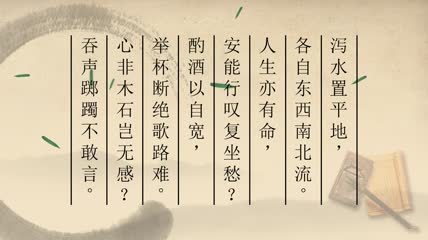 泻水置平地，
各自东西南北流。
人生亦有命，
安能行叹复坐愁？
酌酒以自宽，
举杯断绝歌路难。
心非木石岂无感？
吞声踯躅不敢言。